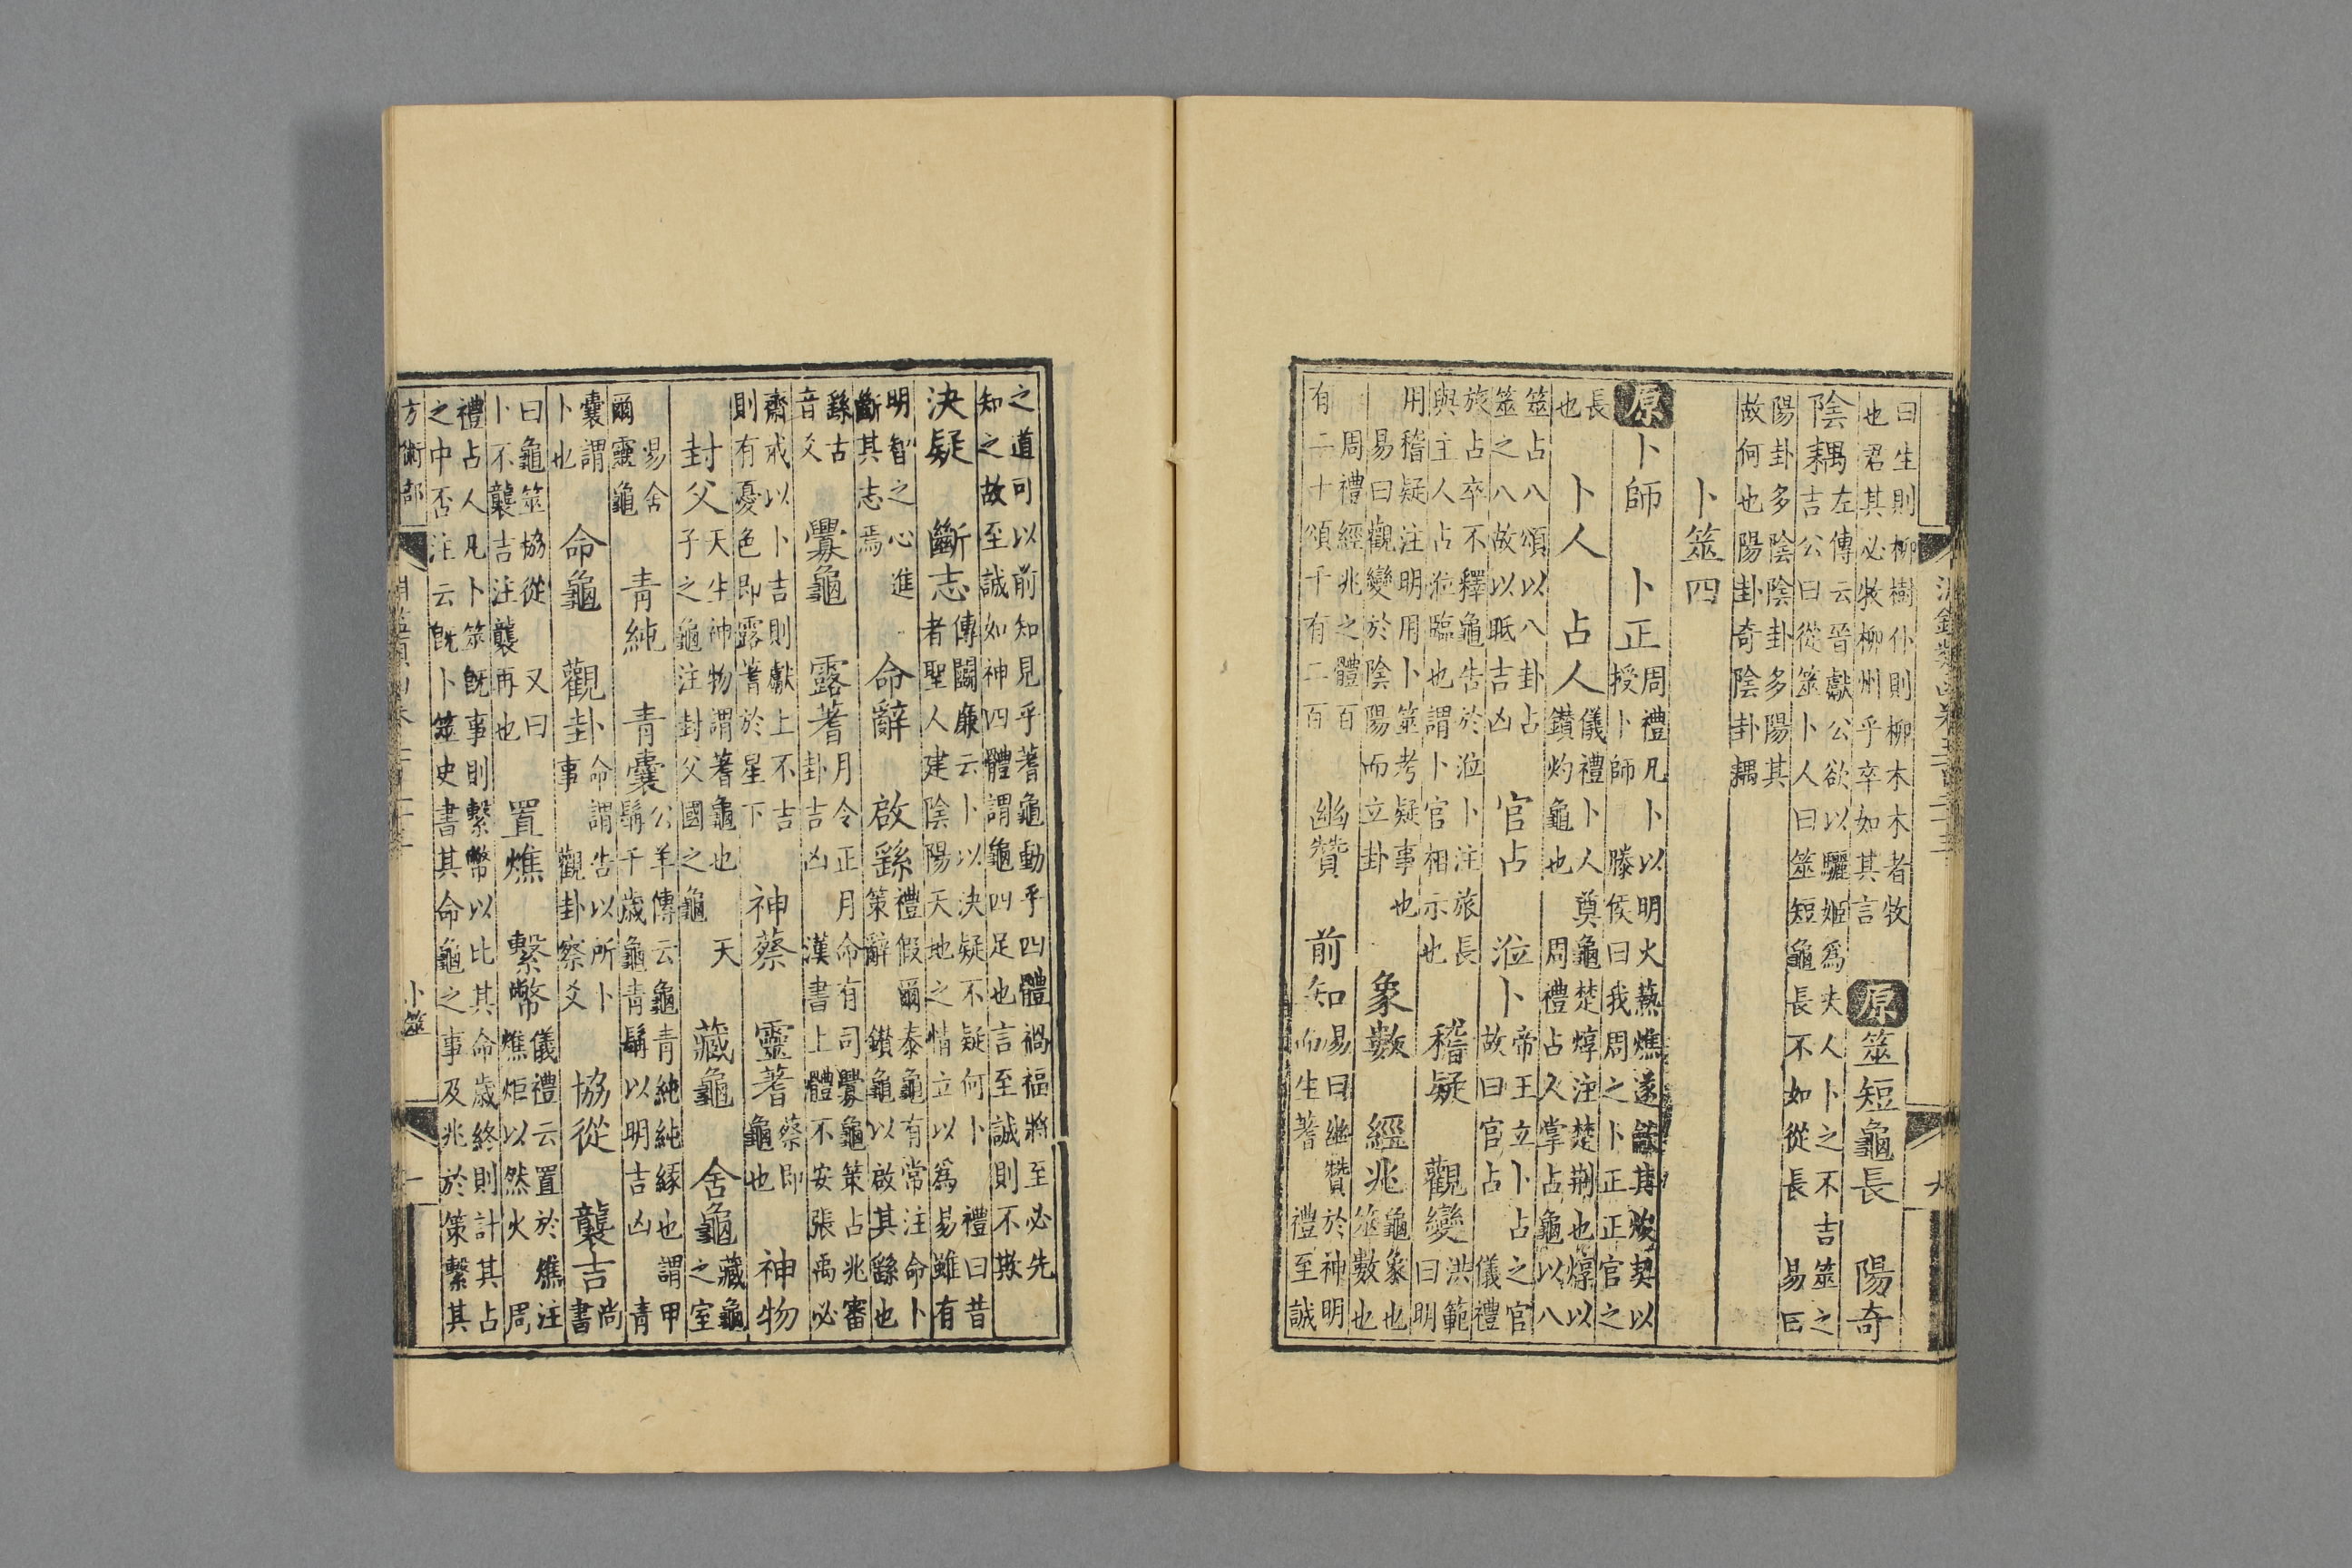 淵鑑類函卷三百二十三
曰生則柳樹仆則柳木木者牧
也君其必牧柳州乎卒如其言
原 筮短龜長 陽奇
陰耦
左傳云晉獻公欲以驪姬為夫人卜之不吉筮之
吉公曰從筮卜人曰筮短龜長不如從長 易曰
陽卦多陰陰卦多陽其
故何也陽卦奇陰卦耦
卜筮四
原 卜師 卜正
周禮凡卜以明火爇燋遂龡其焌契以
授卜師 滕侯曰我周之卜正正官之
長
也
卜人 占人
儀禮卜人奠龜楚焞注楚荊也焞以
鑽灼龜也 周禮占人掌占龜以八
筮占八頌以八卦占
筮之八故以眡吉凶
官占 涖卜
帝王立卜占之官
故曰官占 儀禮
旅占卒不釋龜告於涖卜注旅長
與主人占涖臨也謂卜官相示也
稽疑 觀變
洪範
曰明
用稽疑注明用卜筮考疑事也
易曰觀變於陰陽而立卦
象數 經兆
龜象也
筮數也
周禮經兆之體百
有二十頌千有二百
幽贊 前知
易曰幽贊於神明
而生蓍 禮至誠
之道可以前知見乎蓍龜動乎四體禍福將至必先
知之故至誠如神四體謂龜四足也言至誠則不欺
決疑 斷志
傳鬭廉云卜以決疑不疑何卜 禮曰昔
者聖人建陰陽天地之情立以為易雖有
明智之心進
斷其志焉
命辭 啟繇
禮假爾泰龜有常注命卜
策辭 鑚龜以啟其繇也
繇古
音爻
釁龜 露蓍
月令正月命有司釁龜策占兆審
卦吉凶 漢書上體不安張禹必
齋戒以卜吉則獻上不吉
則有憂色即露蓍於星下
神蔡 靈蓍
蔡即
龜也
神物
封父
天生神物謂蓍龜也 天
子之龜注封父國之龜
藏龜 舍龜
藏龜
之室
易舍
爾靈龜
青純 青囊
公羊傳云龜青純純緣也謂甲
髯千歲龜青髯以明吉凶 青
囊謂
卜也
命龜 觀卦
命謂告以所卜
事 觀卦察爻
協從 襲吉
尚
書
曰龜筮協從 又曰
卜不襲吉注襲再也
置燋 繫幣
儀禮云置於燋注
燋炬以然火 周
禮占人凡卜筮既事則繫幣以比其命歲終則計其占
之中否注云既卜筮史書其命龜之事及兆於策繫其
方術部
卜筮
一